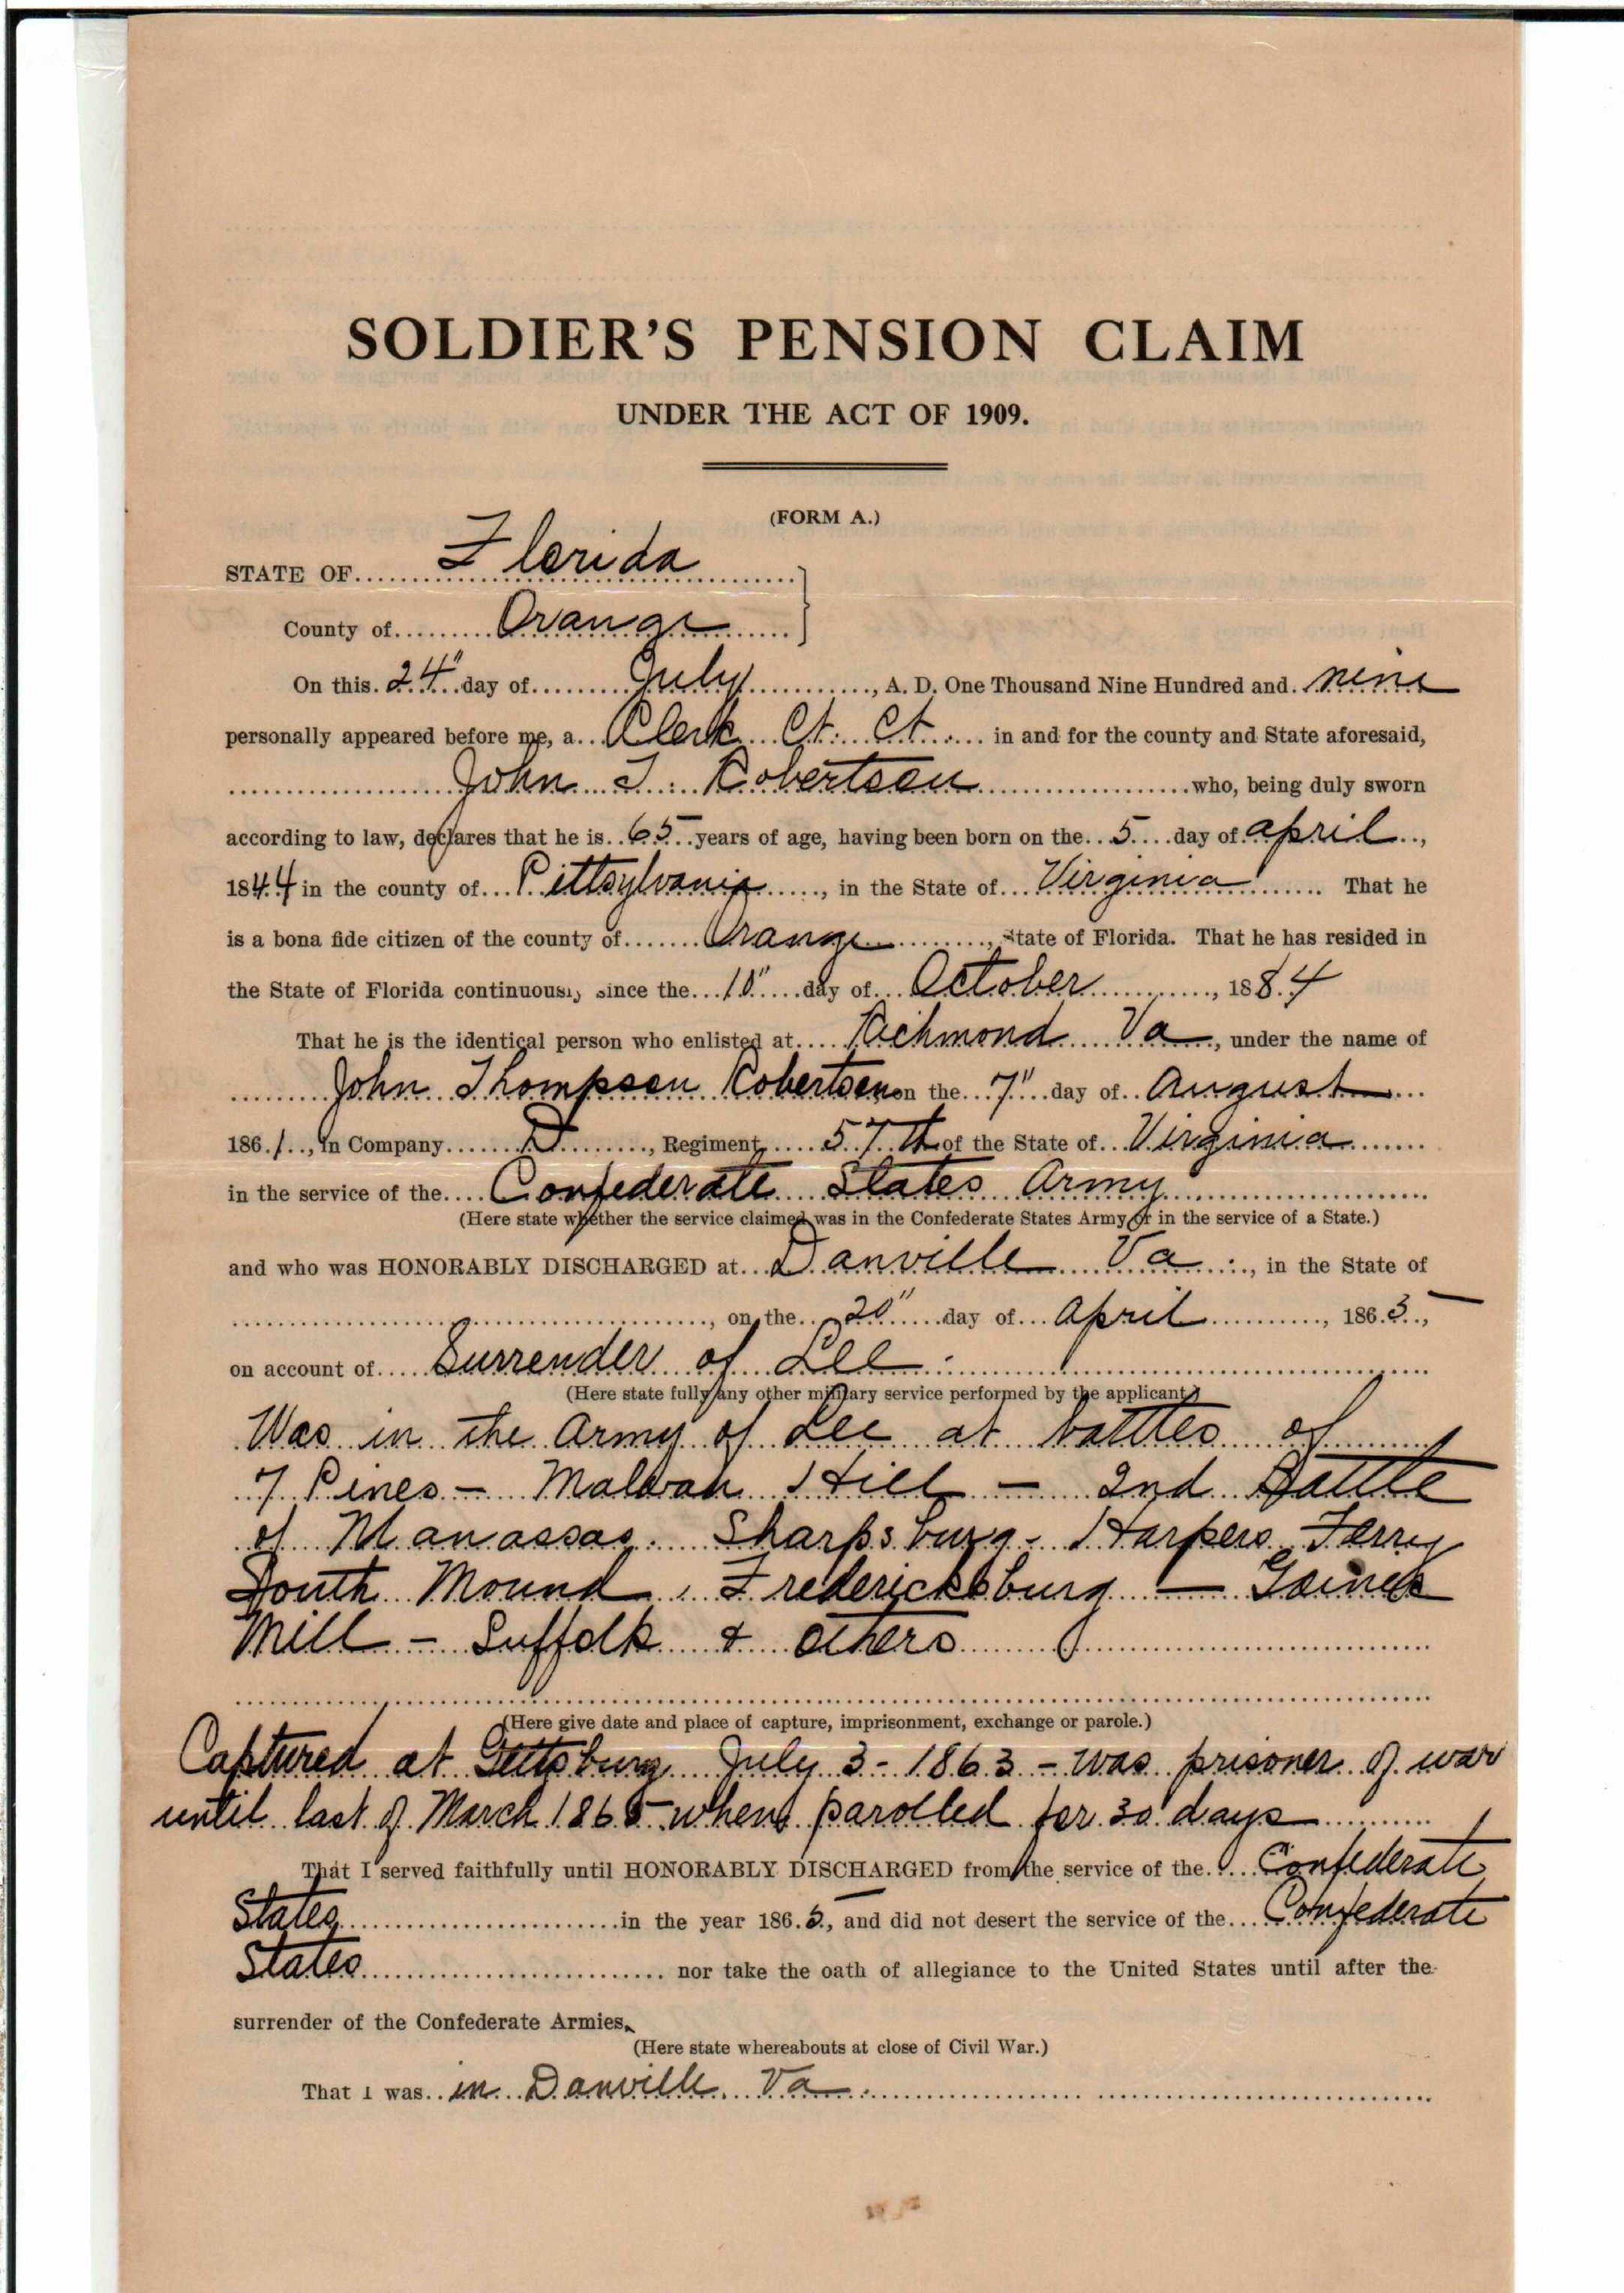 SOLDIER'S PENSION CLAIM
UNDER THE ACT OF 1909.
(FORM A.)
STATE OF Florida
County of Orange
On this 24" day of July, A. D. One Thousand Nine Hundred and nine
personally appeared before me, a Clerk Ct. Ct. in and for the county and State aforesaid,
John T. Robertson who, being duly sworn
according to law, declares that he is 65 years of age, having been born on the 5 day of april,
1844 in the county of Pittsylvania, in the State of Virginia. That he
is a bona fide citizen of the county of Orange, State of Florida. That he has resided in
the State of Florida continuously since the 10" day of October, 1884
That he is the identical person who enlisted at Richmond Va, under the name of
John Thompson Robertson on the 7" day of August
1861, in Company D, Regiment 57th of the State of Virginia
in the service of the Confederate States Army
(Here state whether the service claimed was in the Confederate States Army or in the service of a State.)
and who was HONORABLY DISCHARGED at Danville Va., in the State of
, on the 20" day of april, 1865,
on account of Surrender of Lee.
(Here state fully any other military service performed by the applicant.)
Was in the Army of Lee at battles of
7 Pines - Malvan Hill - 2nd Battle
of Manassas. Sharpsburg - Harpers Ferry
South Mound, Fredericksburg - Gaines
Mill - Suffolk & others
(Here give date and place of capture, imprisonment, exchange or parole.)
Captured at Gettsburg July 3 - 1863 - was prisoner of war
until last of March 1865 when parolled for 30 days
That I served faithfully until HONORABLY DISCHARGED from the service of the Confederate
States in the year 1865, and did not desert the service of the Confederate
States nor take the oath of allegiance to the United States until after the
surrender of the Confederate Armies.
(Here state whereabouts at close of Civil War.)
That I was in Danville Va.